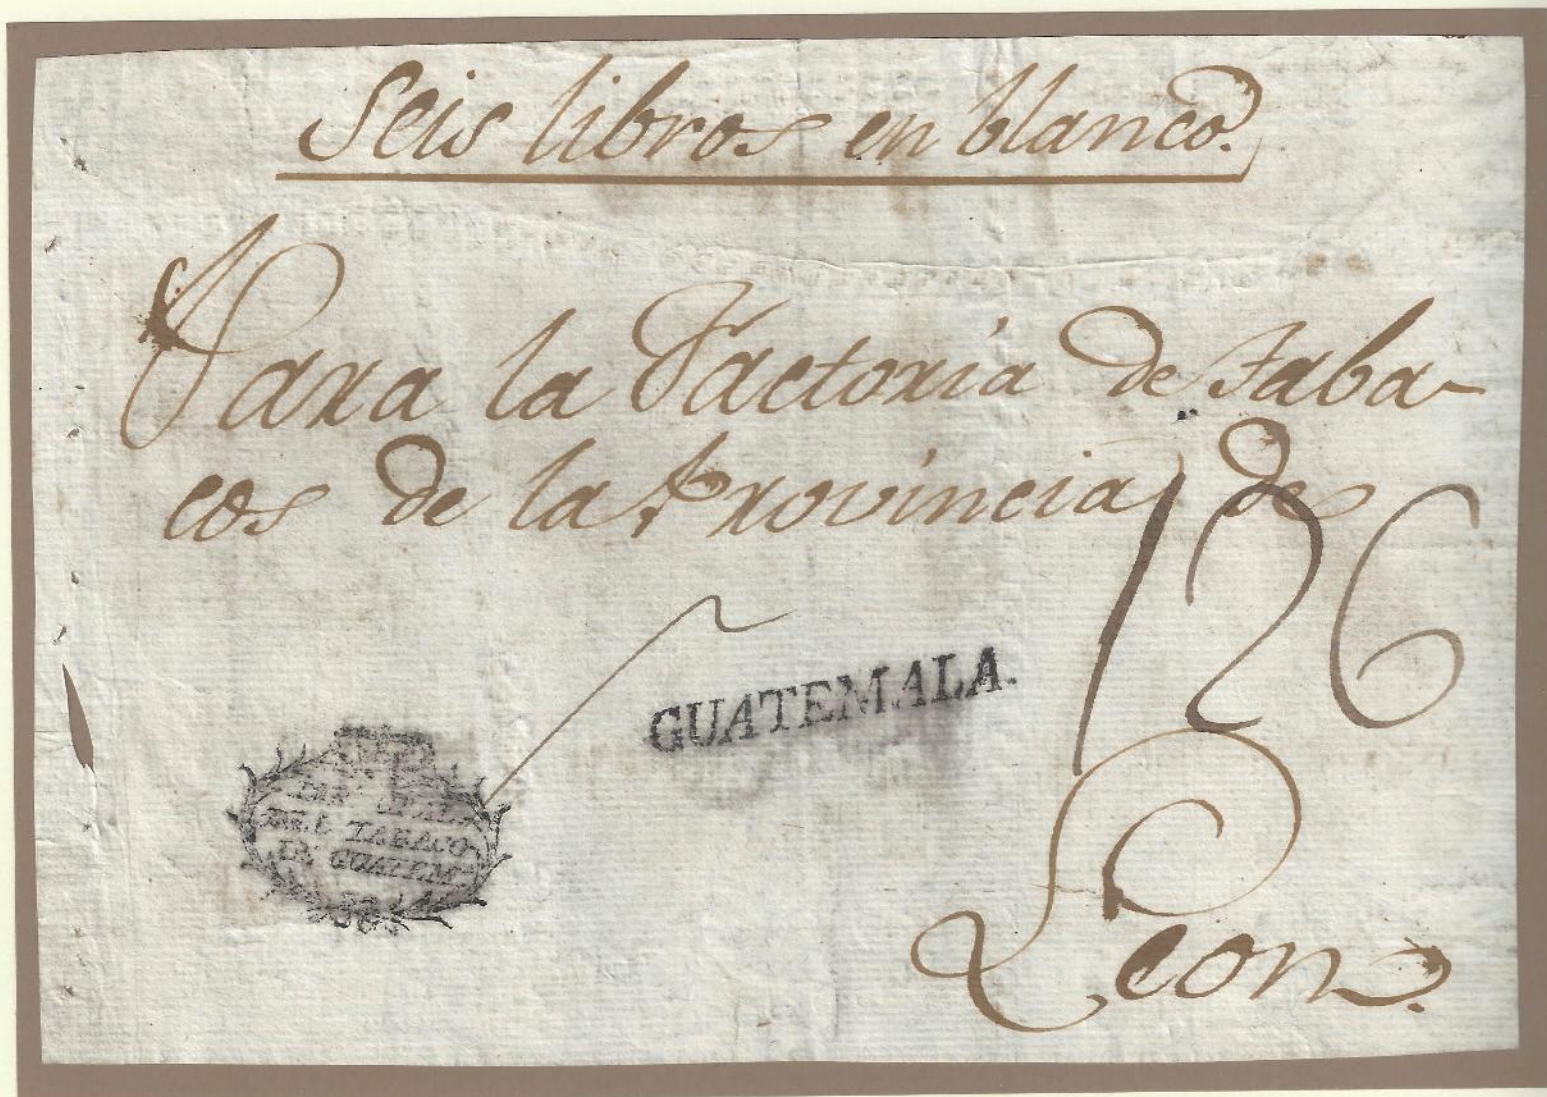 Seis libros en blanco.
Para la Factoria de Taba-
cos de la Provincia de
126
GUATEMALA.
DEL TABACO
DE GUATEM
Leon.